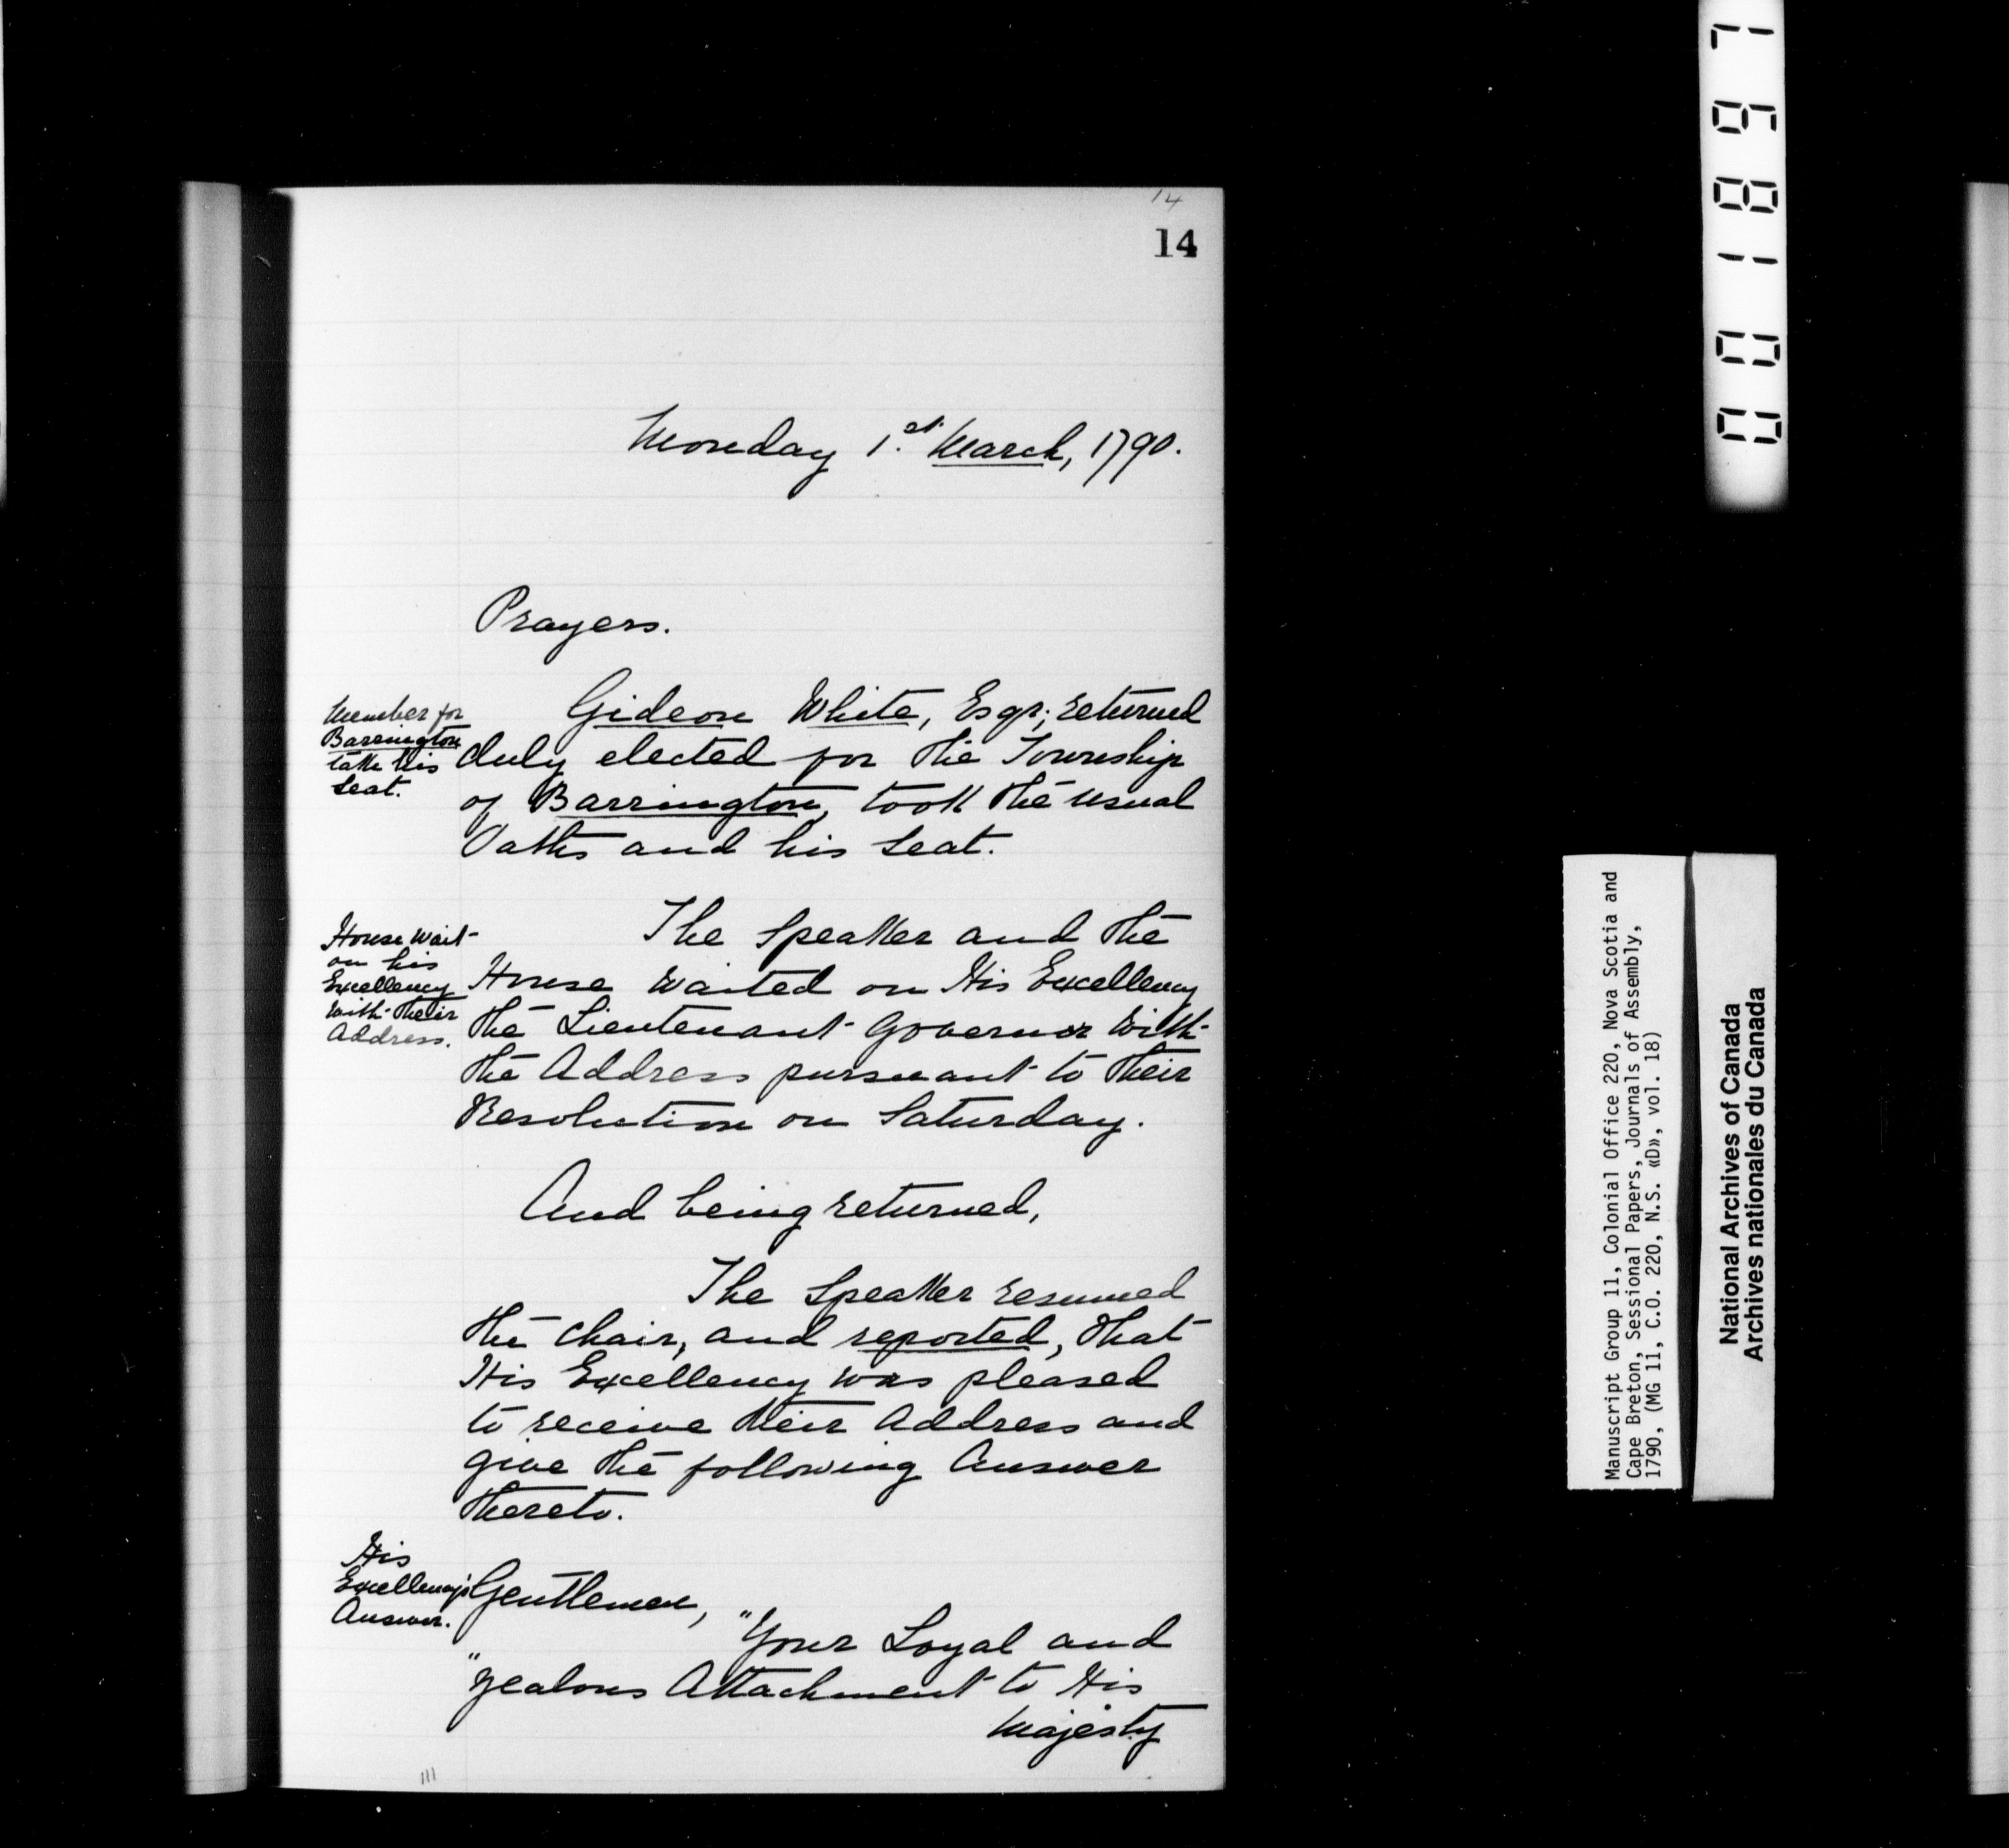 14
14
Monday 1st. March, 1790.
Prayers.
Member for
Barrington
take his
Seat.
Gideon White, Esqr; returned
duly elected for the Township
of Barrington, took the usual
Oaths and his Seat.
House wait
on his
Excellency
with their
Address.
The Speaker and the
House waited on His Excellency
the Lieutenant Governor with
the Address pursuant to their
Resolution on Saturday.
And being returned,
The Speaker resumed
the Chair, and reported, that
His Excellency was pleased
to receive their Address and
give the following Answer
thereto.
His
Excellency's
Answer.
Gentlemen,
"Your Loyal and
"zealous Attachment to His
Majesty
111
001867
Manuscript Group 11, Colonial Office 220, Nova Scotia and
Cape Breton, Sessional Papers, Journals of Assembly,
1790, (MG 11, C.O. 220, N.S. «D», vol. 18)
National Archives of Canada
Archives nationales du Canada